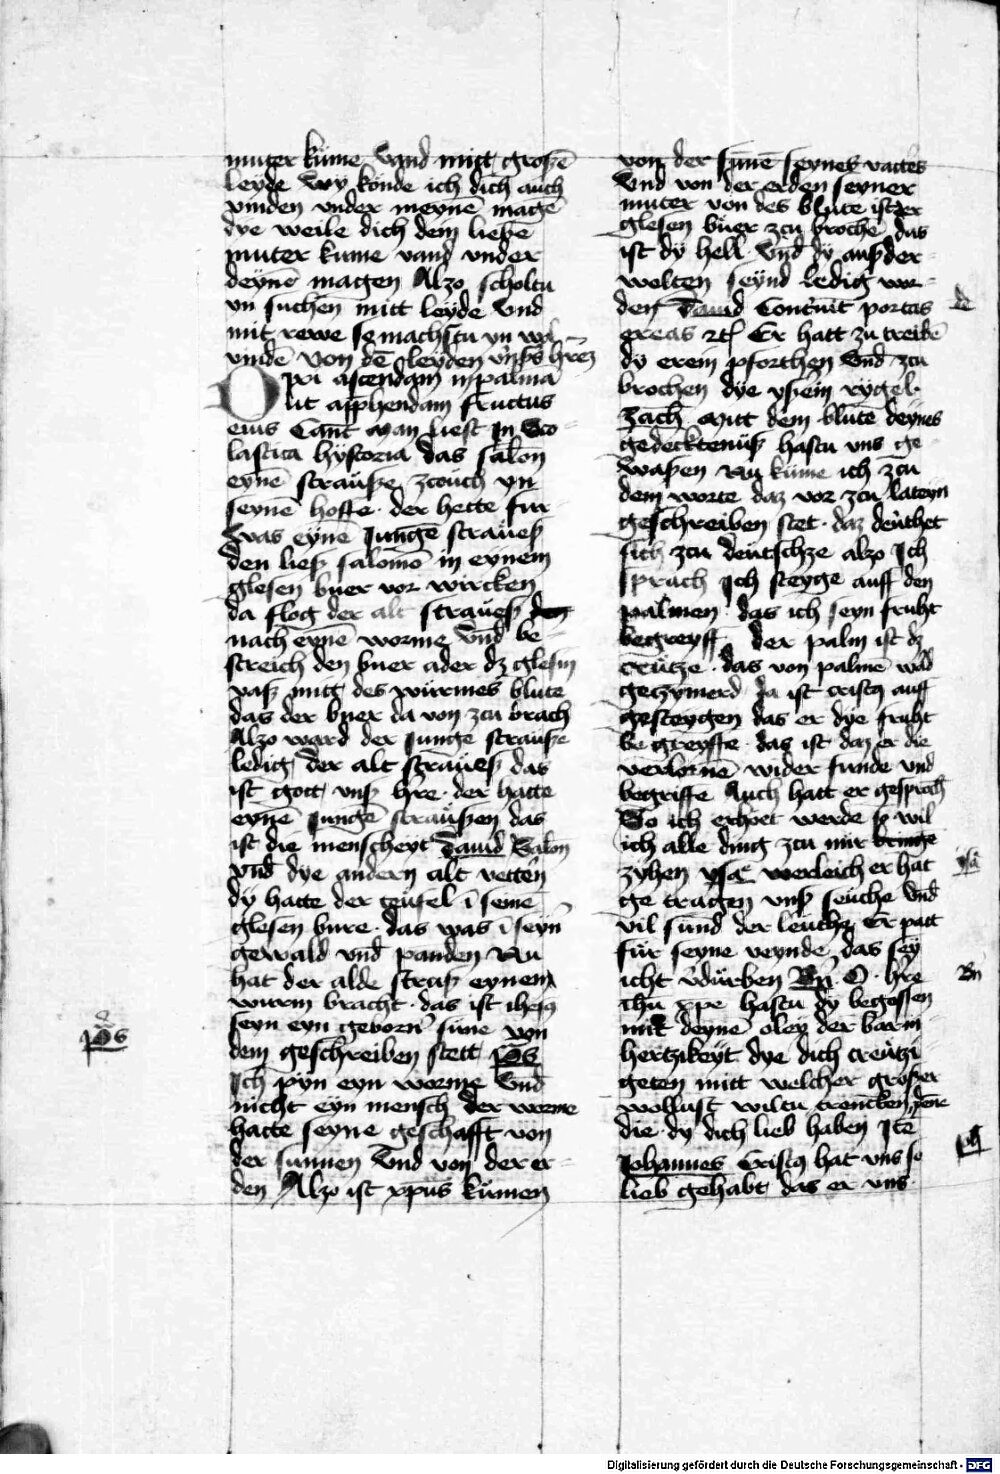 muter kume vand mitt großē
leyde Wy konde ich dich auch
vinden vnder meynē magē
dye weile dich dem liebē
muter kume vand vnder
deynē magen Alzo scholtu
yn suchen mitt leyde Vnd
mit rewe so machstu yn
vindē von dē leyden
Oxi ascendam in palmā
ut apphendam fructus
eius Cant Man liest In Sco
lastica hystoria das salon
eynē strauße zcouch yn
seynē hoffe · der hette fur
was eynē Jungē straueß
den ließ salomō in eynem
glesen buer vor wircken
da flog der alt straueß den
nach eynē worme Vnd be
streich den buer ader dz glesin
vaß mitt des würmes blute
das der buer da von zcu brach
Alzo ward der Junge strauße
ledig der alt straueß das
ist gott vnß hre · der hatte
eynē Jungē straußen das
ist die menscheyt Dauid Salon
vnd dye andern alt vettēn
dy hatte der teufel ī seinē
glesen bure · das was ī seyn
gewald vnd panden Nu
hat der alde strauß eynem
wurm bracht · das ist ihesus
seyn eyn geborn sūne von
dem geschreiben stett Ps
Ich pyn eyn worme Vnd
nicht eyn mensch der worme
hatte seyne geschafft von
der sunnen Vnd von der er
den Alzo ist xpus kumen
Ps
von der sunē seynes vatters
Vnd von der erden seyner
muter von des blute ist der
glesen buer zcu brochē das
ist dy hell Vnd dy auß der
welten seynd ledig wor
den Dauid Contriuit portas
ereas Er hatt zu treibē
dy erem pforthen Vnd zcu
brochen dye yßein rygel ·
Zach Mitt dem blute deynes
gedecktenüß hastu vns ge
Nu kume ich zcu
dem worte daz vor zcu lateyn
geschreiben stet · daz deuthet
sich zcu deutschze alzo Ich
sprach Ich steyge auff den
palmen · das ich seyn fruht
begreyff der palm ist dz
crutze · das von palmē wad
geczymerd da ist cristus auff
gesteygen das er dye fruht
be greyffe · das ist daz er die
verlornē wider funde vnd
begriffe Auch hatt er gesproch
So ich erhoet werde so wil
ich alle ding zcu mir bringe
zyhen ysa werleich er hat
ge tragen vnß seuche Vnd
vil sund der leuthz Er patt
für seyne veynde das sey
icht vdurben Bn O · hre
ihu xpe hastu dy begossen
mit deynē oley der barm
hertzikeyt dye dich creutzi
geten mitt welcher großer
wollust wiltu trencken
die · dy dich lieb haben Itē
Johannes Cristus hat vns so
lieb gehabt das er vns
Bn